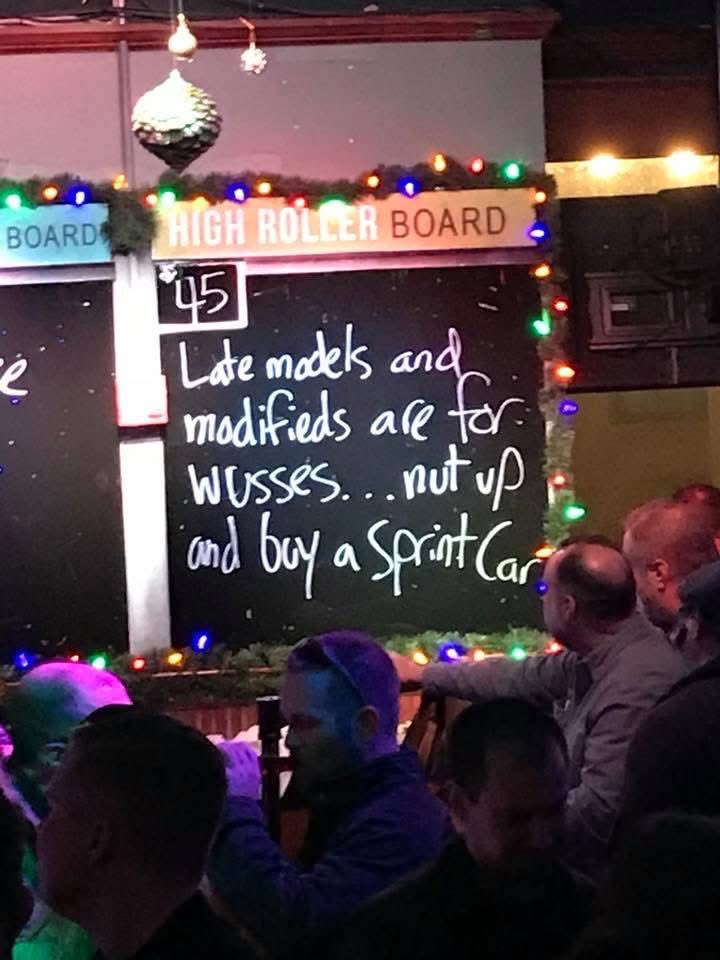 BOARD
HIGH ROLLER BOARD
45
e
Late models and
modifieds are for
wusses...nut up
and buy a Sprint Car